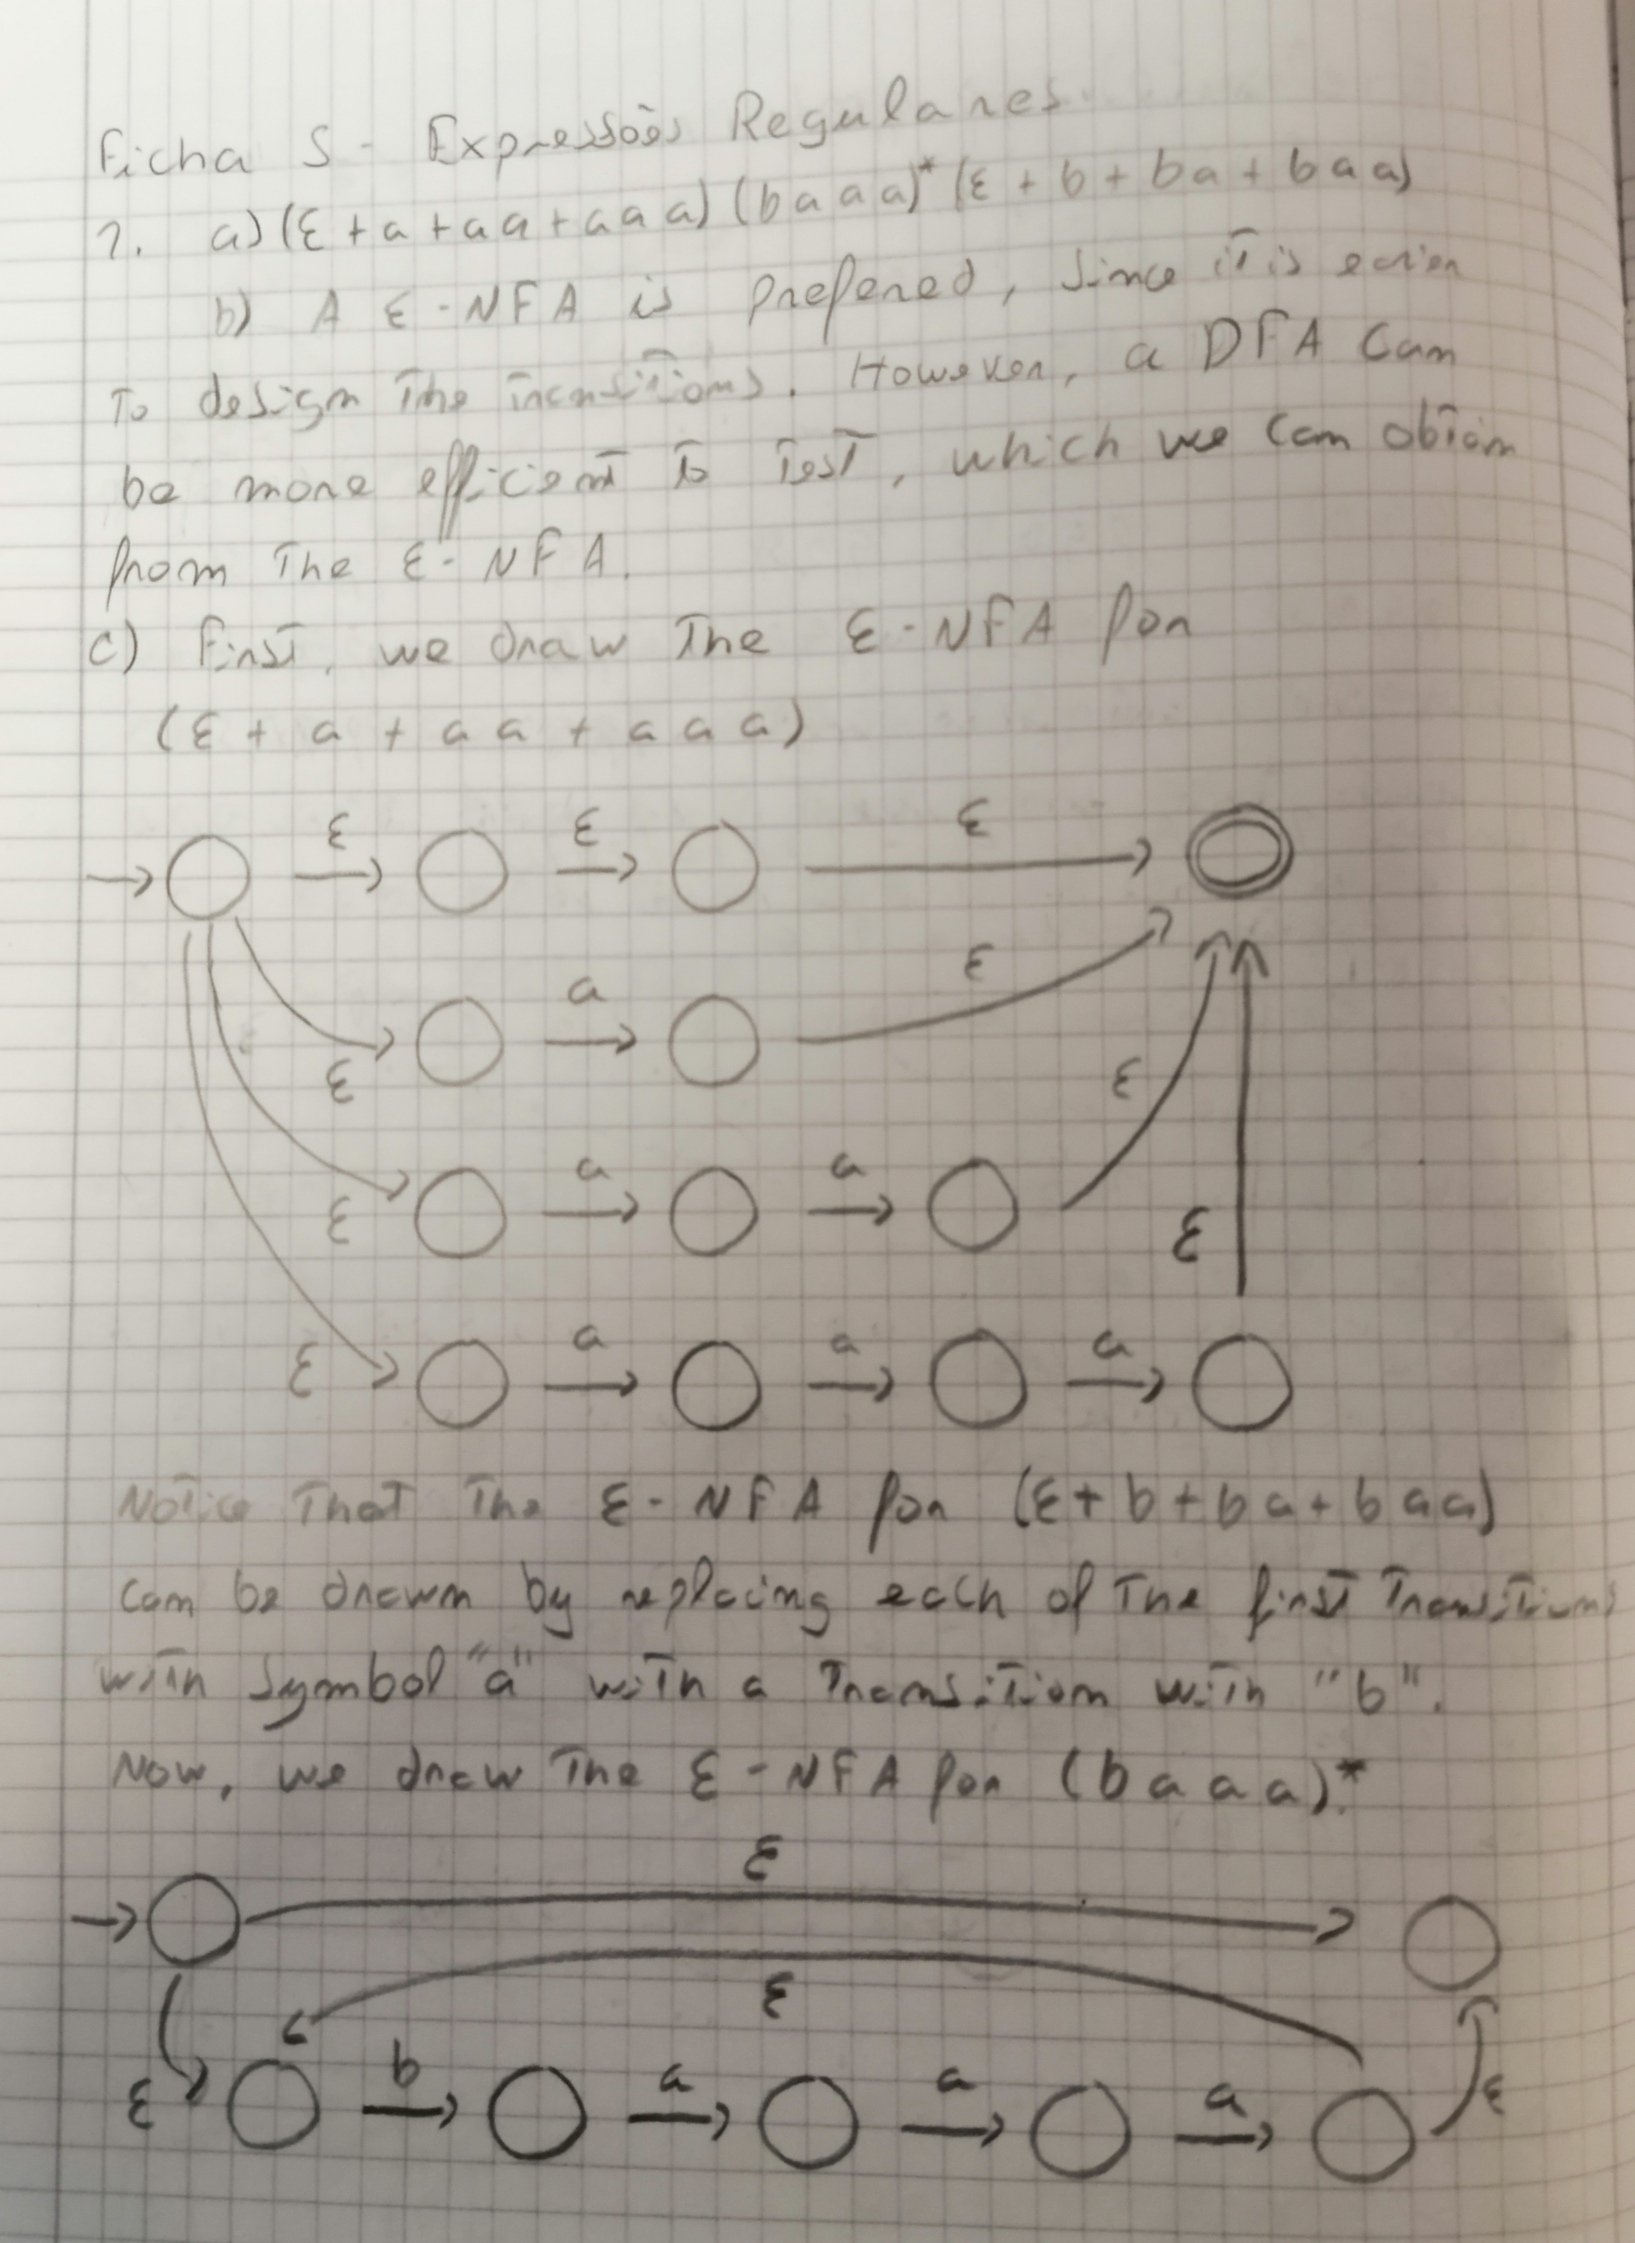 Ficha 5 - Expressões Regulares
1. a) (ε + a + aa + aaa) (baaa)* (ε + b + ba + baa)
b) A ε-NFA is prefered, since it is easier
to design the transitions. However, a DFA can
be more efficient to test, which we can obtain
from the ε-NFA.
c) First, we draw the ε-NFA for
(ε + a + aa + aaa)
ε ε ε
a ε
ε
a a ε
ε
ε
a a a
ε
Notice that the ε-NFA for (ε + b + ba + baa)
can be drawn by replacing each of the first transitions
with symbol "a" with a transition with "b".
Now, we draw the ε-NFA for (baaa)*.
ε
ε
ε b a a a ε